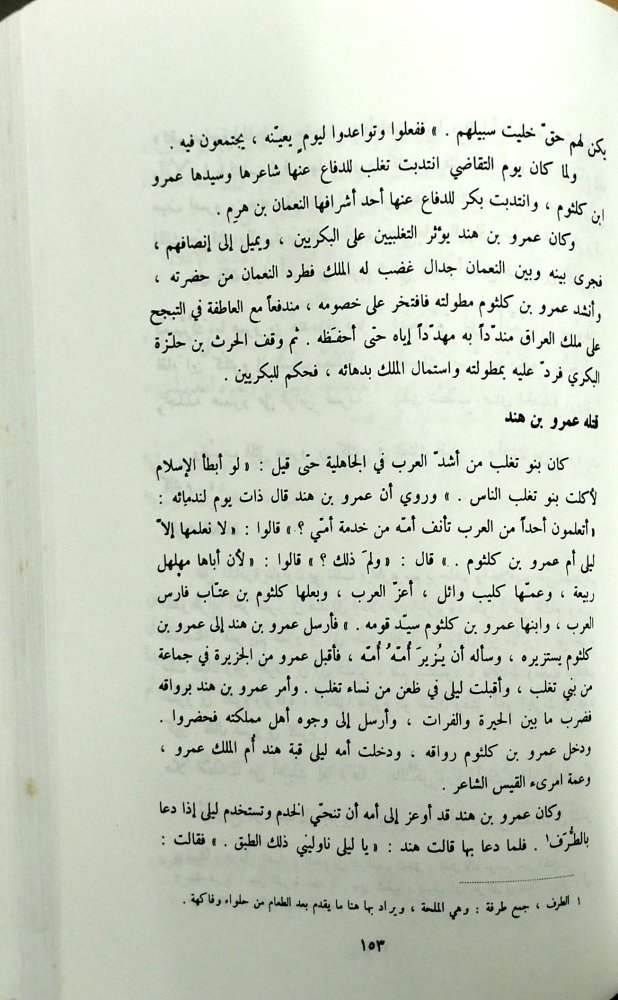 يكن لهم حقّ خليت سبيلهم . » ففعلوا وتواعدوا ليومٍ بعيّنه ، يجتمعون فيه .
ولما كان يوم التقاضي انتدبت تغلب للدفاع عنها شاعرها وسيدها عمرو
ابن كلثوم ، وانتدبت بكر للدفاع عنها أحد أشرافها النعمان بن هرِم .
وكان عمرو بن هند يؤثر التغلبيين على البكريين ، ويميل إلى إنصافهم ،
فجرى بينه وبين النعمان جدال غضب له الملك فطرد النعمان من حضرته ،
وأنشد عمرو بن كلثوم مطولته فافتخر على خصومه ، مندفعاً مع العاطفة في التبجح
على ملك العراق مندّداً به مهدّداً إياه حتى أحفظه . ثم وقف الحرث بن حلّزة
البكري فردّ عليه بمطولته واستمال الملك بدهائه ، فحكم للبكريين .
قتله عمرو بن هند
كان بنو تغلب من أشدّ العرب في الجاهلية حتى قيل : « لو أبطأ الإسلام
لأكلت بنو تغلب الناس . » وروي أن عمرو بن هند قال ذات يوم لندمائه :
« أتعلمون أحداً من العرب تأنف أمّه من خدمة أمّي ؟ » قالوا : « لا نعلمها إلاّ
ليلى أم عمرو بن كلثوم . » قال : « ولمَ ذلك ؟ » قالوا : « لأن أباها مهلهل
ربيعة ، وعمّها كليب وائل ، أعزّ العرب ، وبعلها كلثوم بن عتّاب فارس
العرب ، وابنها عمرو بن كلثوم سيّد قومه . » فأرسل عمرو بن هند إلى عمرو بن
كلثوم يستزيره ، وسأله أن يُزيرَ أُمّهُ أُمّه ، فأقبل عمرو من الجزيرة في جماعة
من بني تغلب ، وأقبلت ليلى في ظعن من نساء تغلب . وأمر عمرو بن هند برواقه
فضرب ما بين الحيرة والفرات ، وأرسل إلى وجوه أهل مملكته فحضروا .
ودخل عمرو بن كلثوم رواقه ، ودخلت أمه ليلى قبة هند أُم الملك عمرو ،
وعمة امرىء القيس الشاعر .
وكان عمرو بن هند قد أوعز إلى أمه أن تنحّي الخدم وتستخدم ليلى إذا دعا
بالطُّرَف١ . فلما دعا بها قالت هند : « يا ليلى ناوليني ذلك الطبق . » فقالت :
١ الطرف ، جمع طرفة : وهي الملحة ، ويراد بها هنا ما يقدم بعد الطعام من حلواء وفاكهة .
١٥٣